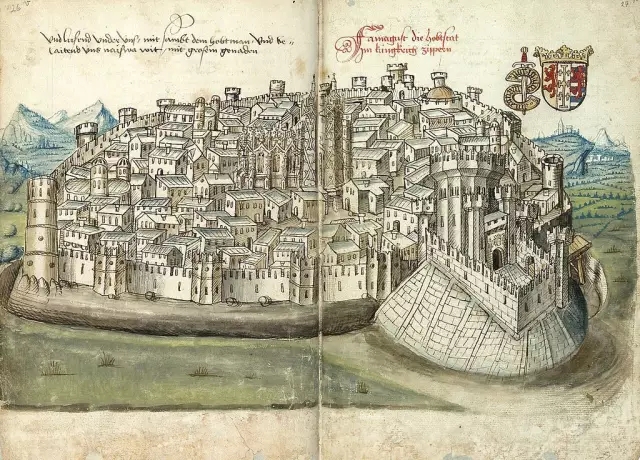 Vnd liesend vnder vns mit sambt dem hobtman Vnd be=
laitend vns naiswa wit mit grosem genaden
Famagust die hobtstat
Im küngkrich zippern